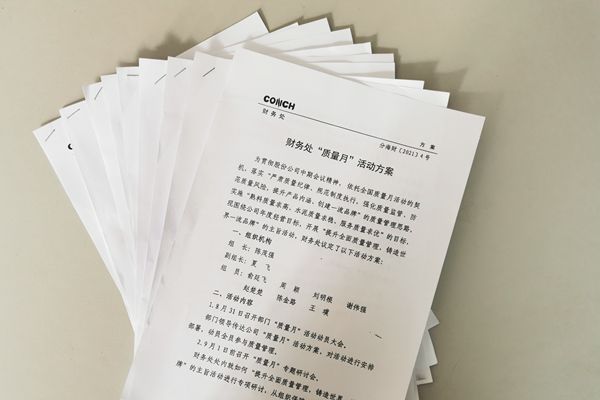 CONCH
财务处
方案
分海财〔2021〕4号
财务处“质量月”活动方案
为贯彻股份公司中期会议精神，依托全国质量月活动的契
机，落实“严肃质量纪律、规范制度执行，强化质量监管、防
范质量风险，提升产品内涵、创建一流品牌”的质量管理思路，
实施“熟料质量求高、水泥质量求稳、服务质量求优”的目标，
围绕公司年度经营目标，开展“提升全面质量管理，铸造世
界一流品牌”的主旨活动，财务处就议定了以下活动方案：
一、组织机构
组 长：陈茂强
副组长：夏 飞
组 员：俞延飞 周 颖 刘明根 谢伟强
赵楚楚 陈金路 王 嘎
二、活动内容
1.8月31日召开部门“质量月”活动动员大会。
部门领导传达公司“质量月”活动方案，对活动进行安排
部署，动员全员参与质量管理。
2.9月1日前召开“质量月”专题研讨会。
财务处处内就如何“提升全面质量管理，铸造世界
牌”的主旨活动进行专项研讨，从组织保